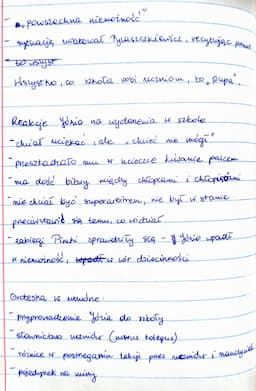 - „powszechna niemożność"
- sytuację uratował Pylaszczkiewicz, recytując
to wszyst
Wszystko, co szkoła robi uczniom, to „pupa".
Reakcje Józia na wydarzenia w szkole
- chciał uciekać, ale „chcieć nie mógł"
- przeszkadzało mu w ucieczce kiwanie palcem
- ma dość bitwy między chłopcami i chłopiętami
- nie chciał być superarbitrem, nie był w stanie
przeciwstawić się temu, co widział
- zabiegi Pimki sprawdziły się - Józio wpadł
w niemożność, wpadł w wir dziecinności
Groteska w utworze:
- przyprowadzenie Józia do szkoły
- słownictwo uczniów
- różnice w postrzeganiu lekcji przez uczniów i nauczycieli
- pojedynek na miny